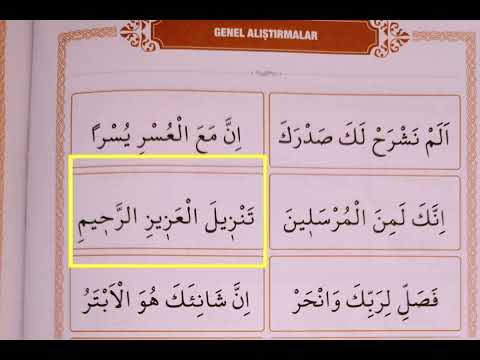 GENEL ALIŞTIRMALAR
اَلَمْ نَشْرَحْ لَكَ صَدْرَكَ
اِنَّ مَعَ الْعُسْرِ يُسْرًا
اِنَّكَ لَمِنَ الْمُرْسَلٖينَ
تَنْزٖيلَ الْعَزٖيزِ الرَّحٖيمِ
فَصَلِّ لِرَبِّكَ وَانْحَرْ
اِنَّ شَانِئَكَ هُوَ الْاَبْتَرُ